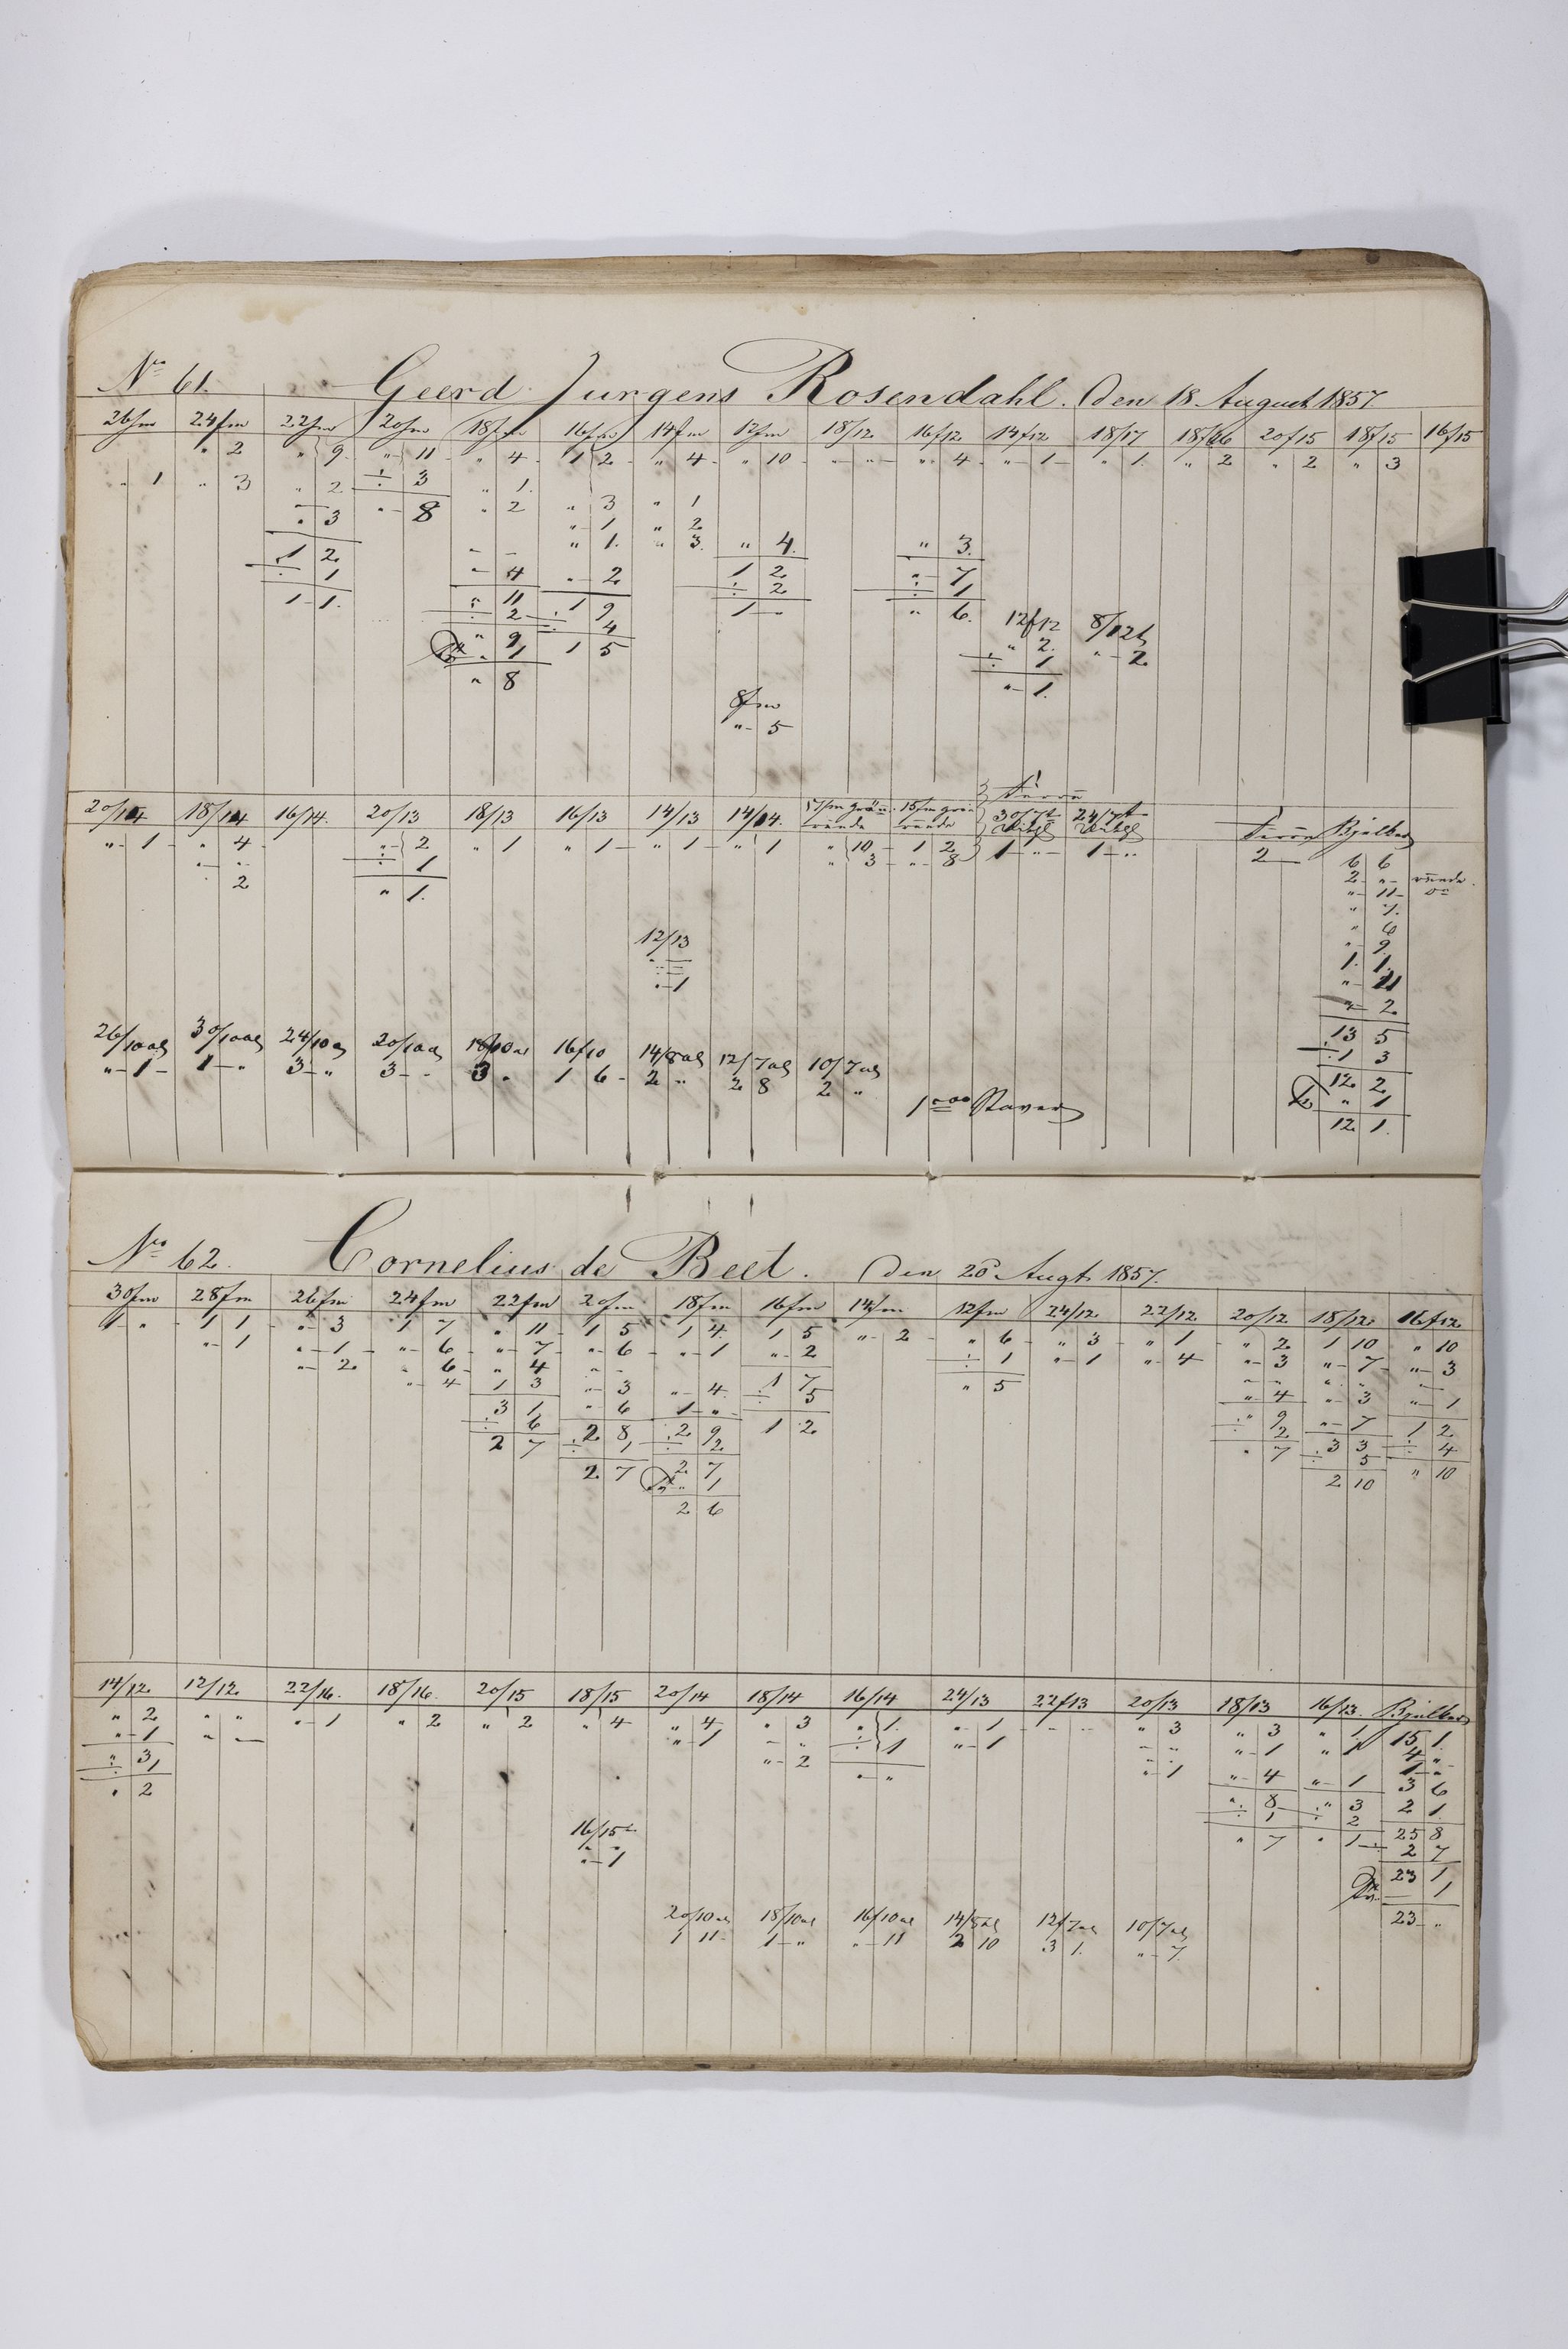 No 61. Geerd Jurgens Rosendahl. Den 18 August 1857
26fm 24fm 22fm 20fm 18fm 16fm 14fm 12fm 18/12 16/12 14/12 18/17 18/16 20/15 18/15 16/15
" 2 " 9 " 11 " 4 1 2 " 4 " 10 " " " 4 " 1 " 1 " 2 " 2 " 3
" 1 " 3 " 2 ÷ 3 " 1
" 3 " 8 " 2 " 3 " 1
" 1 " 2
1 2 " " " 1 " 3 " 4 " 3
÷ 1 " 4 " 2 1 2 " 7
1 1 " 11 1 9 ÷ 2 ÷ 1
÷ 2 ÷ 4 1 " " 6 12/12 8/12
" 9 1 5 " 2 " 2
" 1 ÷ 1
" 8 " 1
8fm
" 5
20/14 18/14 16/14 20/13 18/13 16/13 14/13 14/14 17fm 15fm 30/7 24/7 Bjelker
" 1 " 4 " 2 " 1 " 1 " 1 " 1 " 10 1 2 1 " 1 " 2 6 6
" " ÷ 1 " 3 " 8 2 "
2 " 1 " 11
" 7
" 6
12/13 " 9
1 1
" 1 " 11
" 2
13 5
1 3
26/10al 30/10al 24/10al 20/10al 18/10al 16/10 14/8al 12/7al 10/7al 12 2
" 1 1 " 3 " 3 " 3 " 1 6 2 " 2 8 2 " " 1
Staver 12 1
No 62. Cornelius de Beet. Den 20 Augt. 1857.
30fm 28fm 26fm 24fm 22fm 20fm 18fm 16fm 14fm 12fm 24/12 22/12 20/12 18/12 16/12
1 " 1 1 " 3 1 7 " 11 1 5 1 4 1 5 " 2 " 6 " 3 " 1 " 2 1 10 " 10
" 1 " 1 " 6 " 7 " 6 " 1 " 2 ÷ 1 " 1 " 4 " 3 " 7 " 3
" 2 " 6 " 4 " " 1 7 " 5 " " " " " "
" 4 1 3 " 3 " 4 ÷ 5 " 4 " 3 " 1
3 1 " 6 1 " 1 2 " 9 " 7 1 2
÷ 6 2 8 2 9 ÷ 2 3 3 ÷ 4
2 7 ÷ 1 ÷ 2 " 7 ÷ 5 " 10
2 7 2 7 2 10
" 1
2 6
14/12 12/12 22/16 18/16 20/15 18/15 20/14 18/14 16/14 24/13 22/13 20/13 18/13 16/13 Bjelker
" 2 " " " 1 " 2 " 2 " 4 " 4 " 3 " 1 " 1 " " " 3 " 3 " 1 15 1
" 1 " " " 1 " " ÷ 1 " 1 " " " 1 " 1 4 "
" 3 " 2 " " " 1 " 4 " 1 1 "
÷ 1 " 8 " 3 3 6
" 2 ÷ 1 ÷ 2 2 1
16/15 " 7 " 1 25 8
" 1 2 7
23 1
1
20/10al 18/10al 16/10al 14/8al 12/7al 10/7al 23 "
1 11 1 " " 11 2 10 3 1 " 7